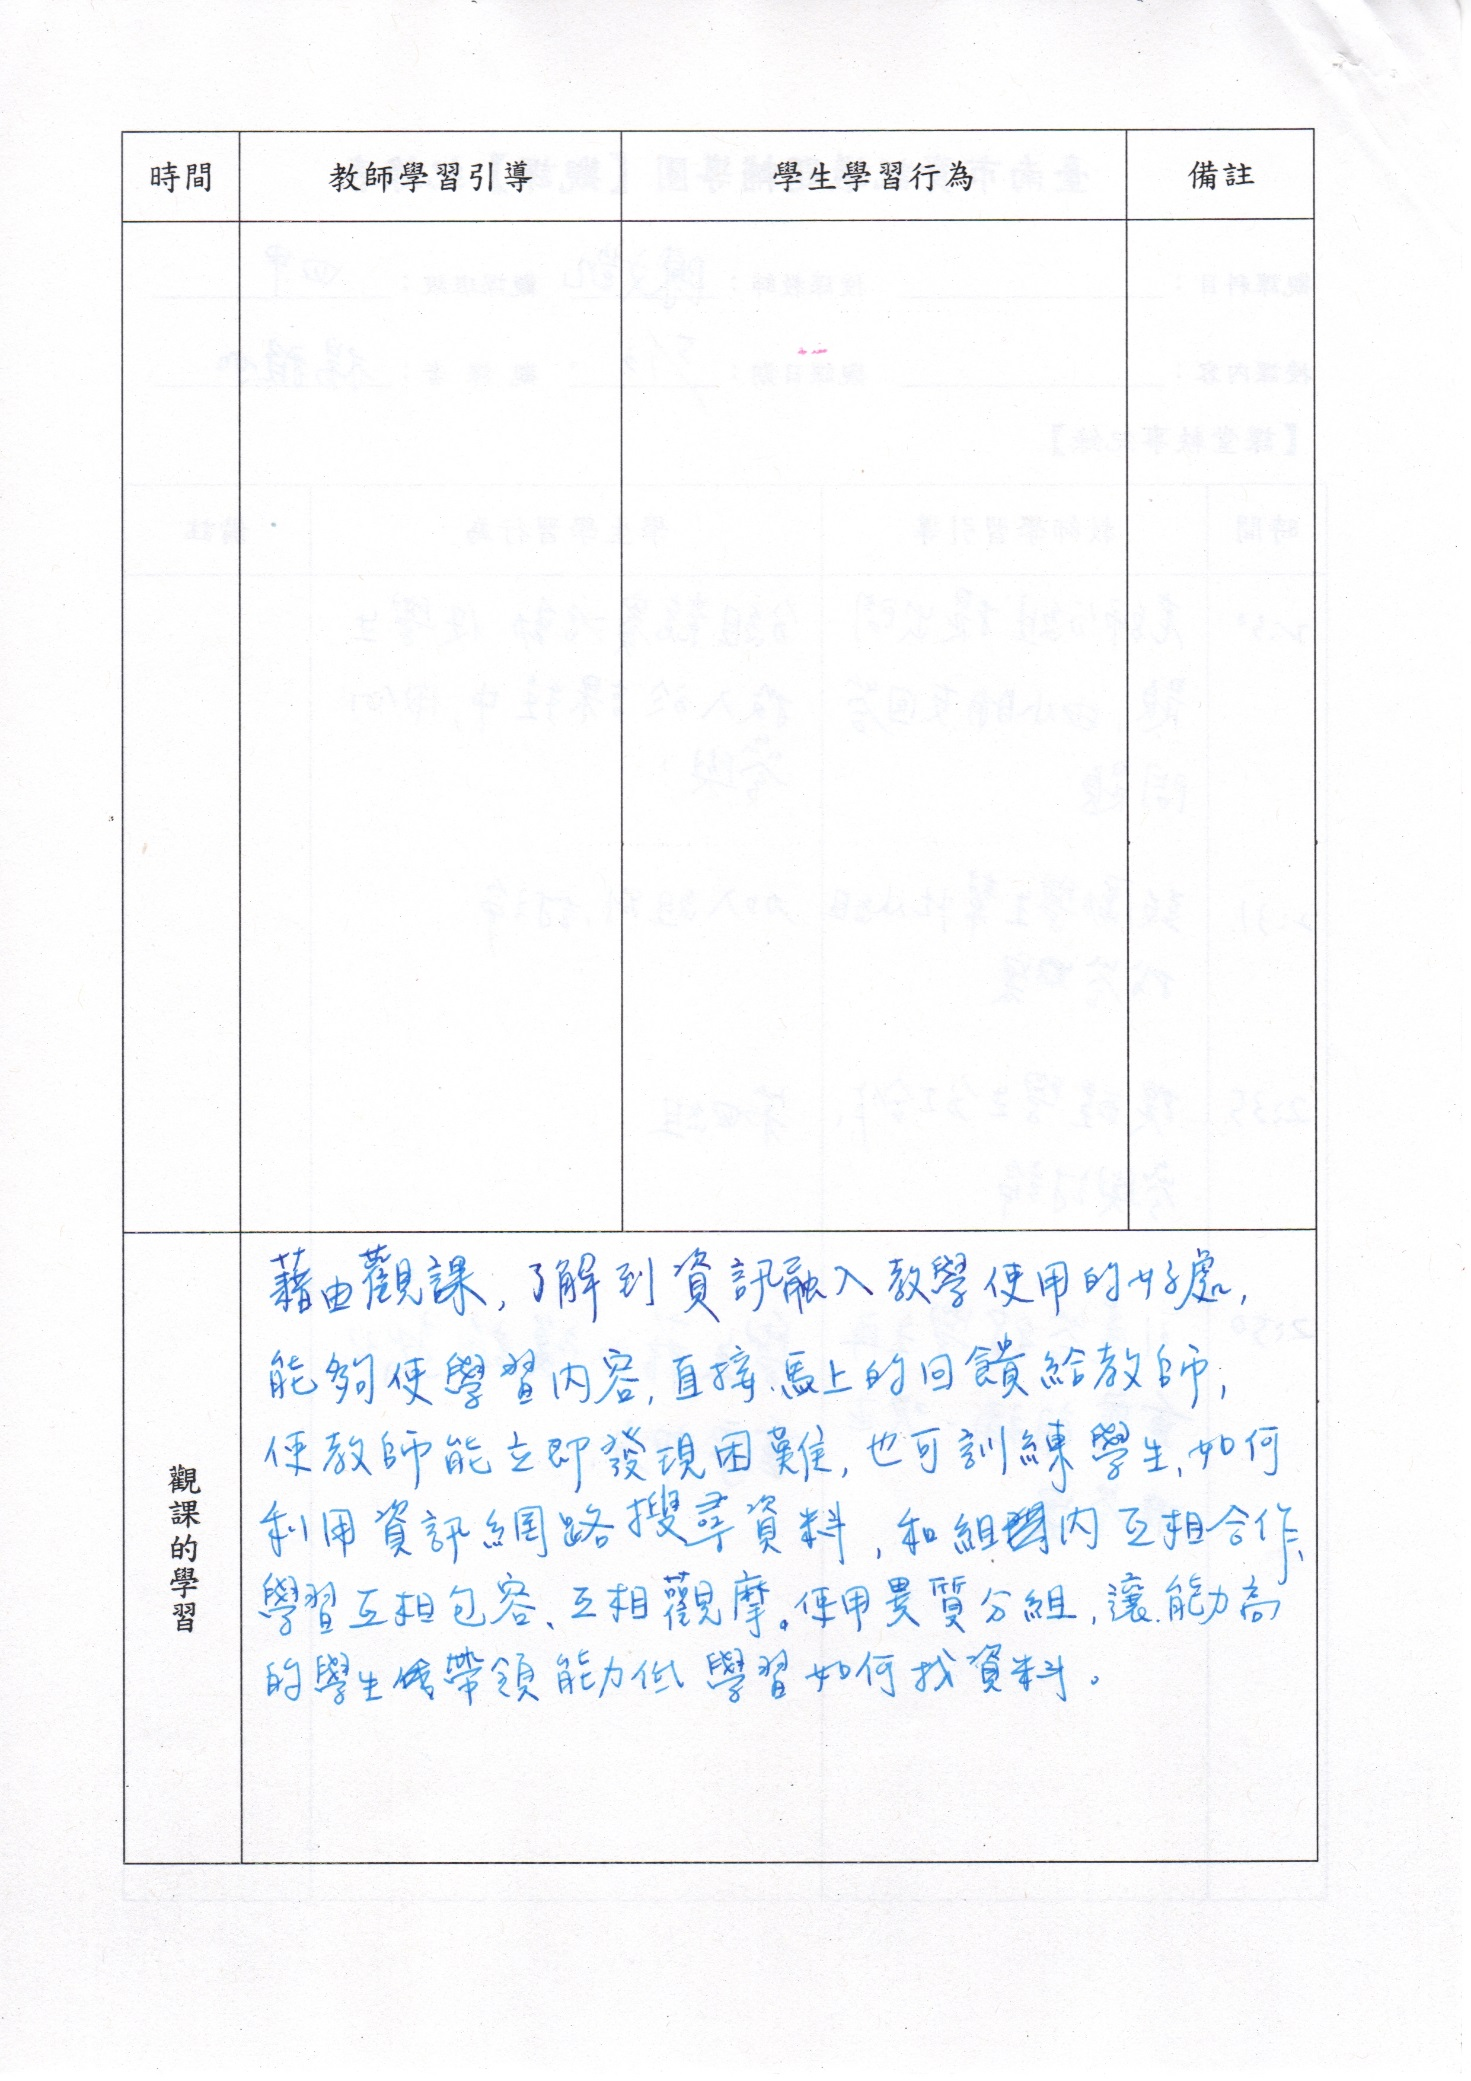 時間 教師學習引導 學生學習行為 備註
觀課的學習
藉由觀課,了解到資訊融入教學使用的好處,
能夠使學習內容,直接、馬上的回饋給教師,
使教師能立即發現困難,也可訓練學生,如何
利用資訊網路搜尋資料,和組內互相合作、
學習互相包容、互相觀摩。使用異質分組,讓能力高
的學生帶領能力低 學習如何找資料。